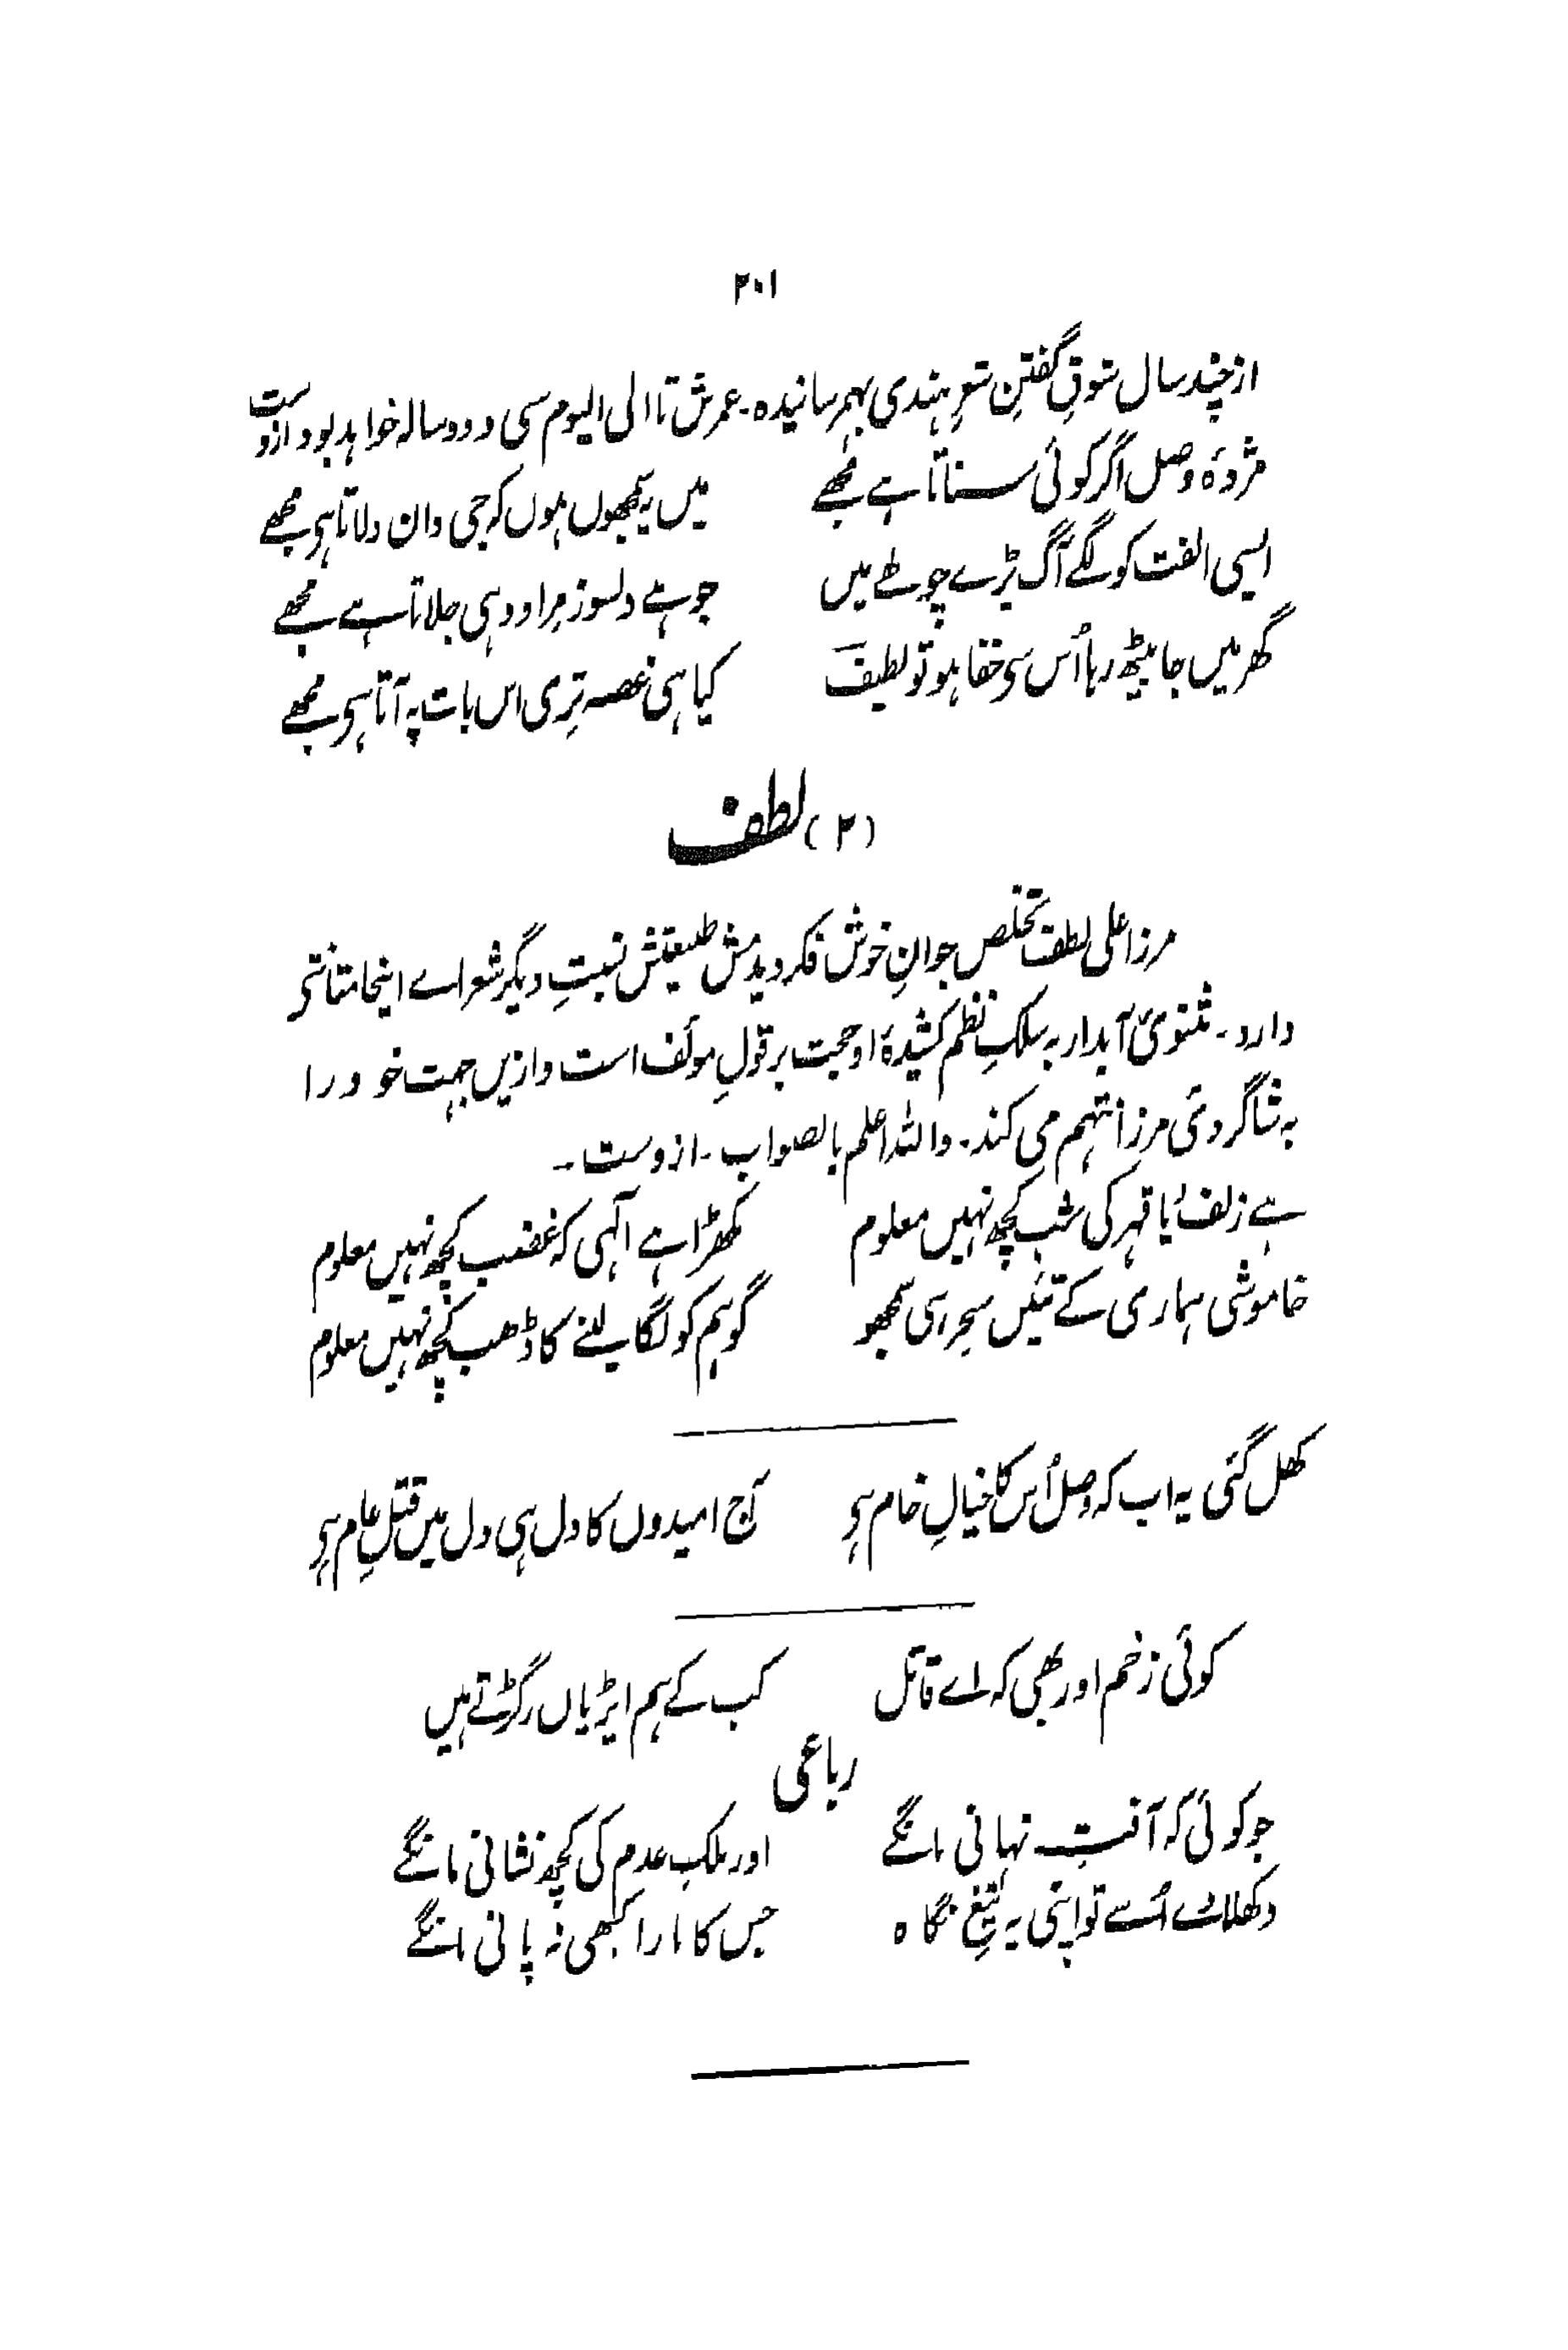 ۲۰۱
از چند سال شوقِ گفتنِ شعرِ ہندی بہم رسانیدہ۔ عمرش تا الی الیوم سی و دو سالہ خواہد بود ازوست
مژدۂ وصل اگر کوئی سناتا ہے مجھے میں یہ سمجھوں ہوں کہ جی دان دلاتا ہی مجھے
ایسی الفت کو لگے آگ پڑے چولھے میں جو ہے دلسوز مرا وو ہی جلاتا ہے مجھے
گھر میں جا بیٹھ رہا اُس سی خفا ہو تو لطیف کیا ہی غصہ تِری اس بات پہ آتا ہی مجھے
(۲) لطف
مرزا علی لطف تخلص جوانِ خوش فکر دیدمش طبیعتش نسبتِ دیگر شعراے اینجا متانتے
دارد۔ مثنویٔ آبدار بہ سلکِ نظم کشیدۂ او حجت بر قولِ مولف است و ازیں جہت خود را
بہ شاگردیٔ مرزا متہم می کند۔ واللہ اعلم بالصواب۔ ازوست۔
ہے زلف یا قہر کی شب کچھ نہیں معلوم مکھڑا ہے الٰہی کہ غضب کچھ نہیں معلوم
خاموشی ہماری کے تئیں سِحر ہی سمجھو گو ہم کو لگا لینے کا ڈھب کچھ نہیں معلوم
کھل گئی یہ اب کہ وصل اُس کا خیالِ خام ہی آج امیدوں کا دل ہی دل میں قتلِ عام ہی
کوئی زخم اور بھی کہ اے قاتل کب کے ہم ایڑیاں رگڑتے ہیں
رباعی
جو کوئی کہ آفتِ نہانی مانگے اور ملکِ عدم کی کچھ نشانی مانگے
دکھلائے اُسے تو اپنی یہ تیغِ نگاہ جس کا مارا کبھی نہ پانی مانگے